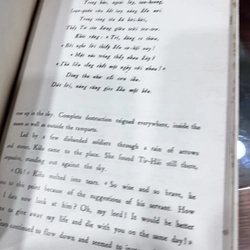 Trong hào, ngoài lũy, tan-hoang,
Thấy Từ còn đứng giữa trời trơ-trơ.
Khóc rằng : « Trí, dũng có thừa,
« Bởi nghe lời thiếp
« Mặt nào trông thấy nhau đây ?
« Thà liều sống thác một ngày với nhau ! »
Dòng thu như xối cơn sầu,
Dứt lời, nàng cũng gieo đầu một bên.
up in the sky. Complete destruction reigned everywhere, inside the
moats as well as outside the ramparts.
Led by a few disbanded soldiers through a rain of arrows
and stones, Kiều came to the place. She found Từ-Hải still there,
standing out against the sky.
« Oh! » Kiều melted into tears. « So wise and so brave, he
to this point because of the suggestions of his servant. How
I dare now look at him? Oh, my lord! It would be better
to give away my life and die with you on the same day! »
continued to flow down, and seemed to